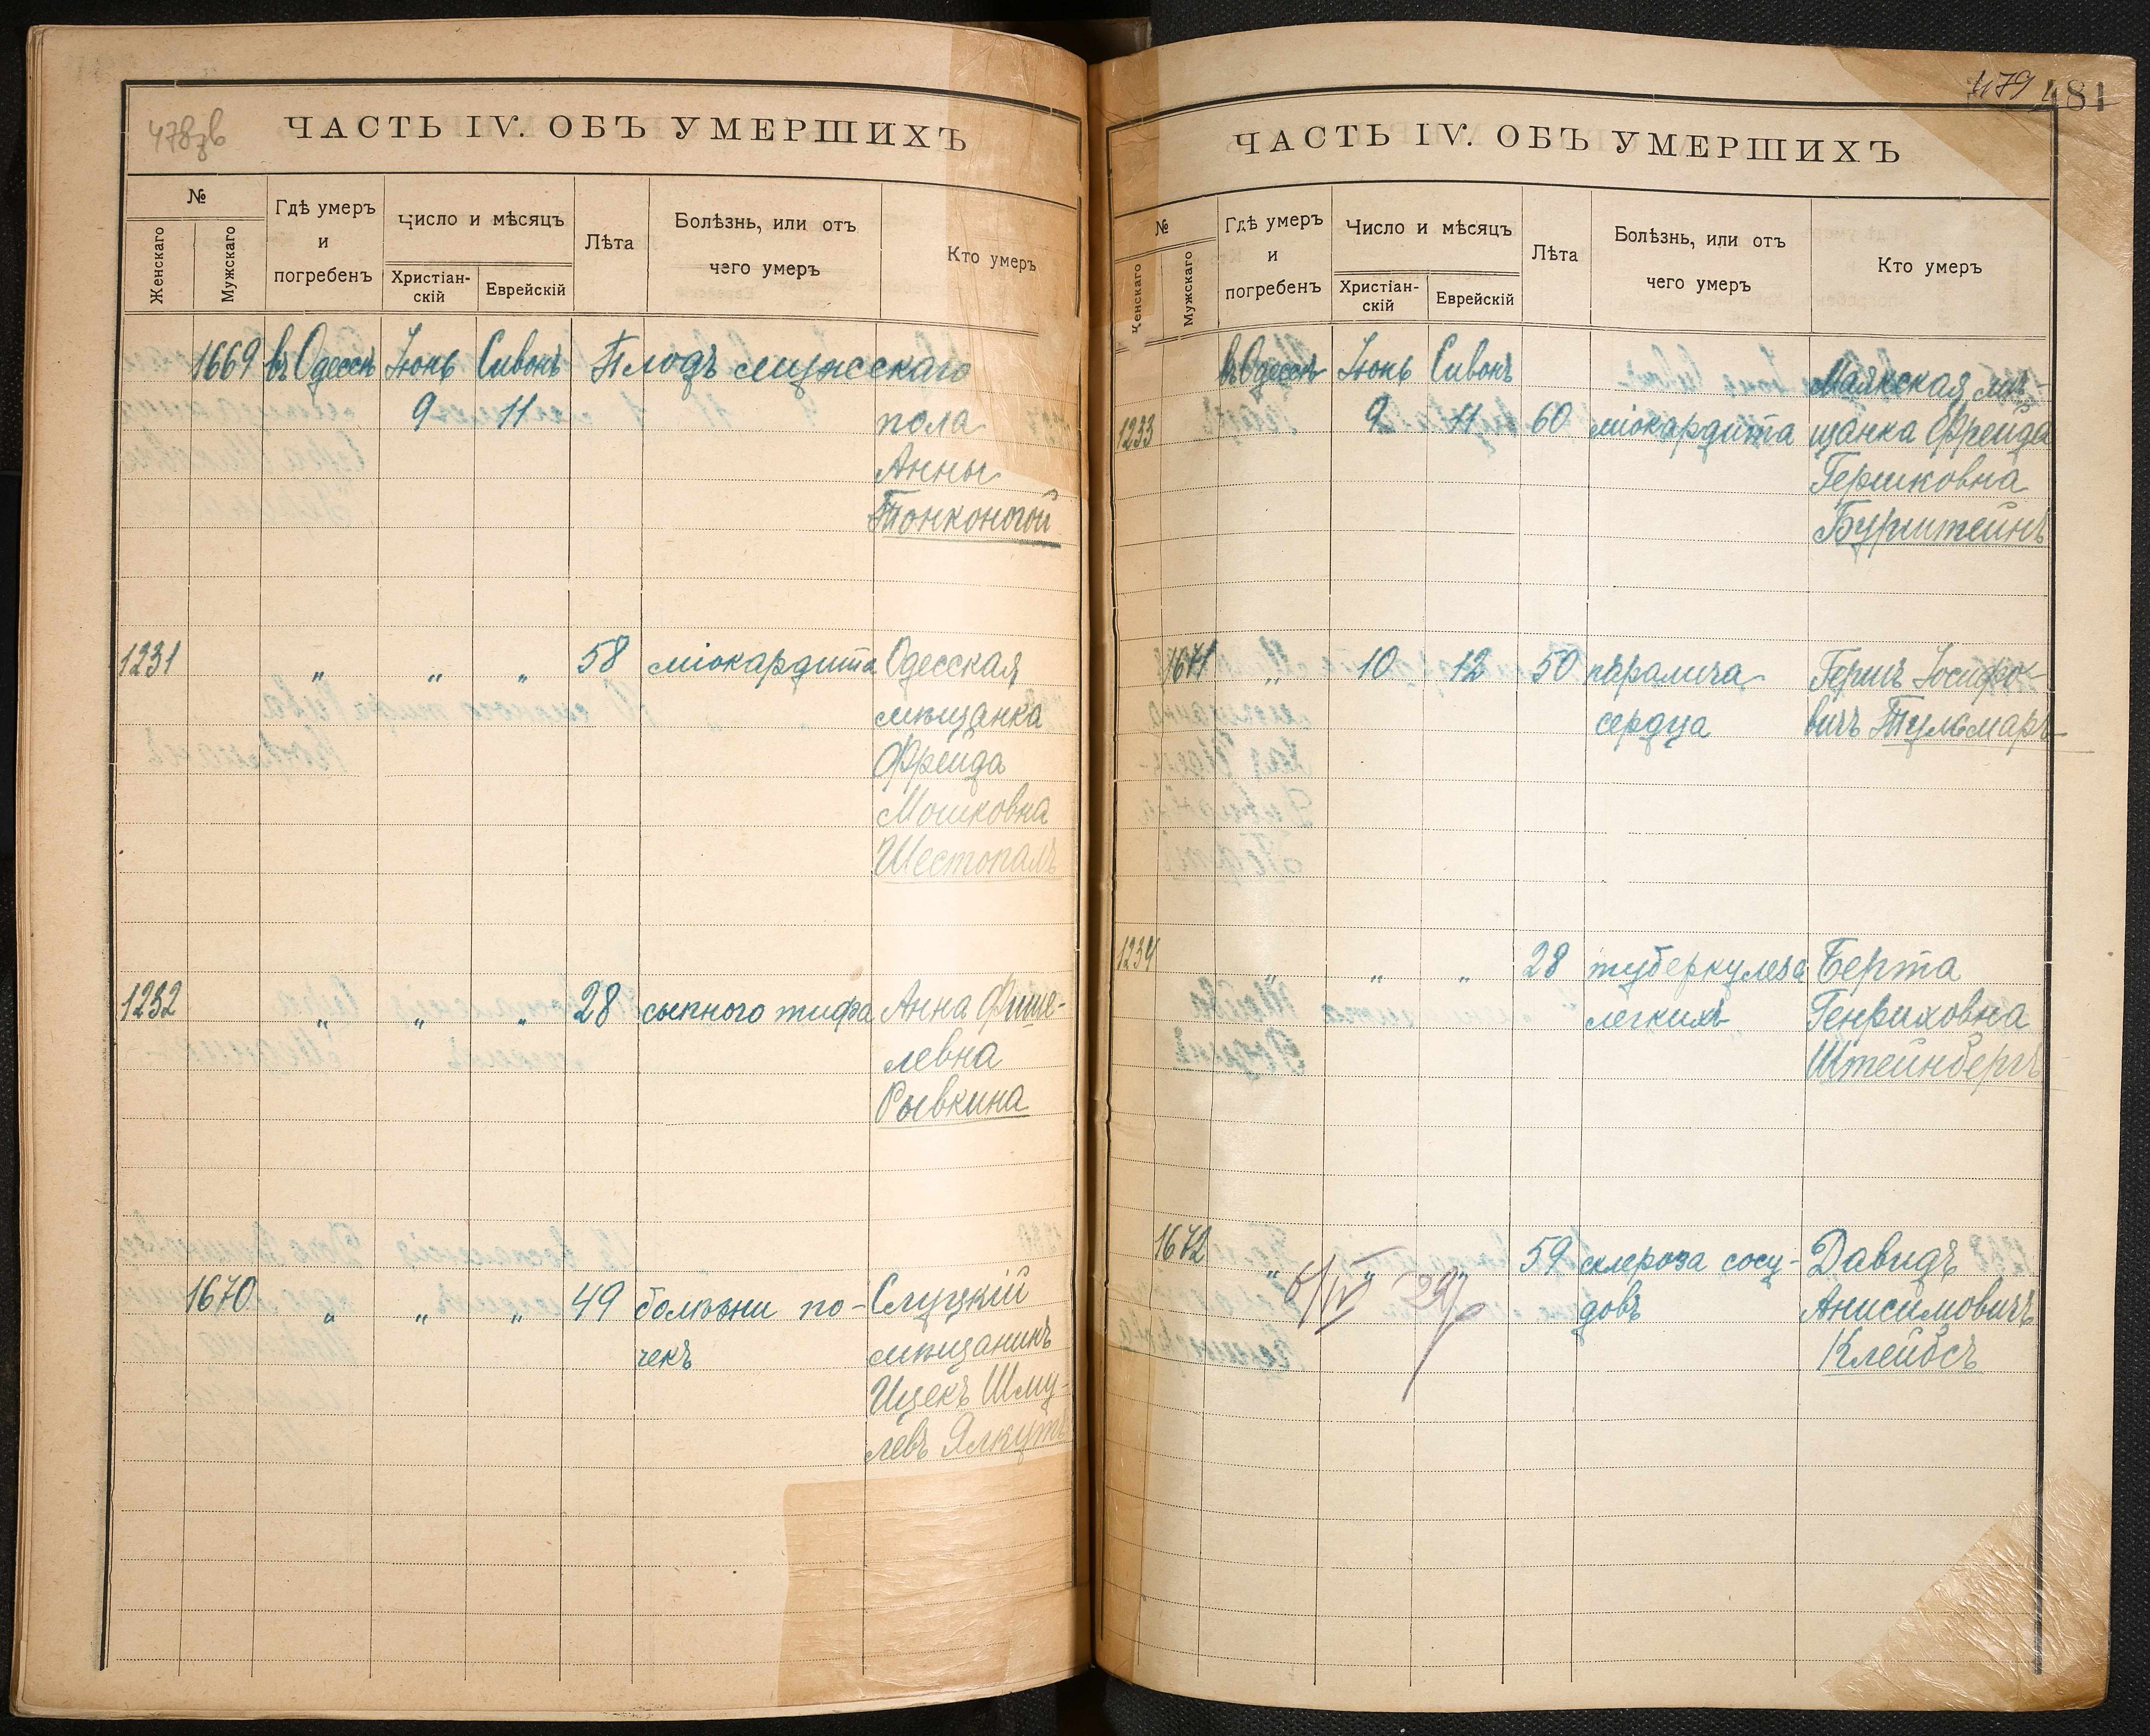 478зв
ЧАСТЬ IV. ОБЪ УМЕРШИХЪ
№
Женскаго
Мужскаго
Гдѣ умеръ
и
погребенъ
Число и мѣсяцъ
Христіан-
скій
Еврейскій
Лѣта
Болѣзнь, или отъ
чего умеръ
Кто умеръ
1669 въ Одессѣ Іюнь Сивонъ Плодъ мужескаго
9 11 пола
Анны
Тонконогой
1231 " " " 58 міокардита Одесская
мѣщанка
Фрейда
Мошковна
Шестопалъ
1232 " " " 28 сыпного тифа Анна Фише-
левна
Рывкина
1670 " " " 49 болѣзни по- Слуцкій
чекъ мѣщанинъ
Ицекъ Шму-
левъ Ялкутъ
479 481
ЧАСТЬ IV. ОБЪ УМЕРШИХЪ
№
Женскаго
Мужскаго
Гдѣ умеръ
и
погребенъ
Число и мѣсяцъ
Христіан-
скій
Еврейскій
Лѣта
Болѣзнь, или отъ
чего умеръ
Кто умеръ
въ Одессѣ Іюнь Сивонъ Маякская мѣ-
1233 9 11 60 міокардита щанка Фрейда
Гершковна
Бурштейнъ
1671 " 10 12 50 паралича Гершъ Іосифо-
сердца вичъ Тульмаръ
1234 " " " 28 туберкулеза Берта
легкихъ Генриховна
Штейнбергъ
1672 " " " 59 склероза сосу- Давидъ
довъ Анисимовичъ
Клейбсъ